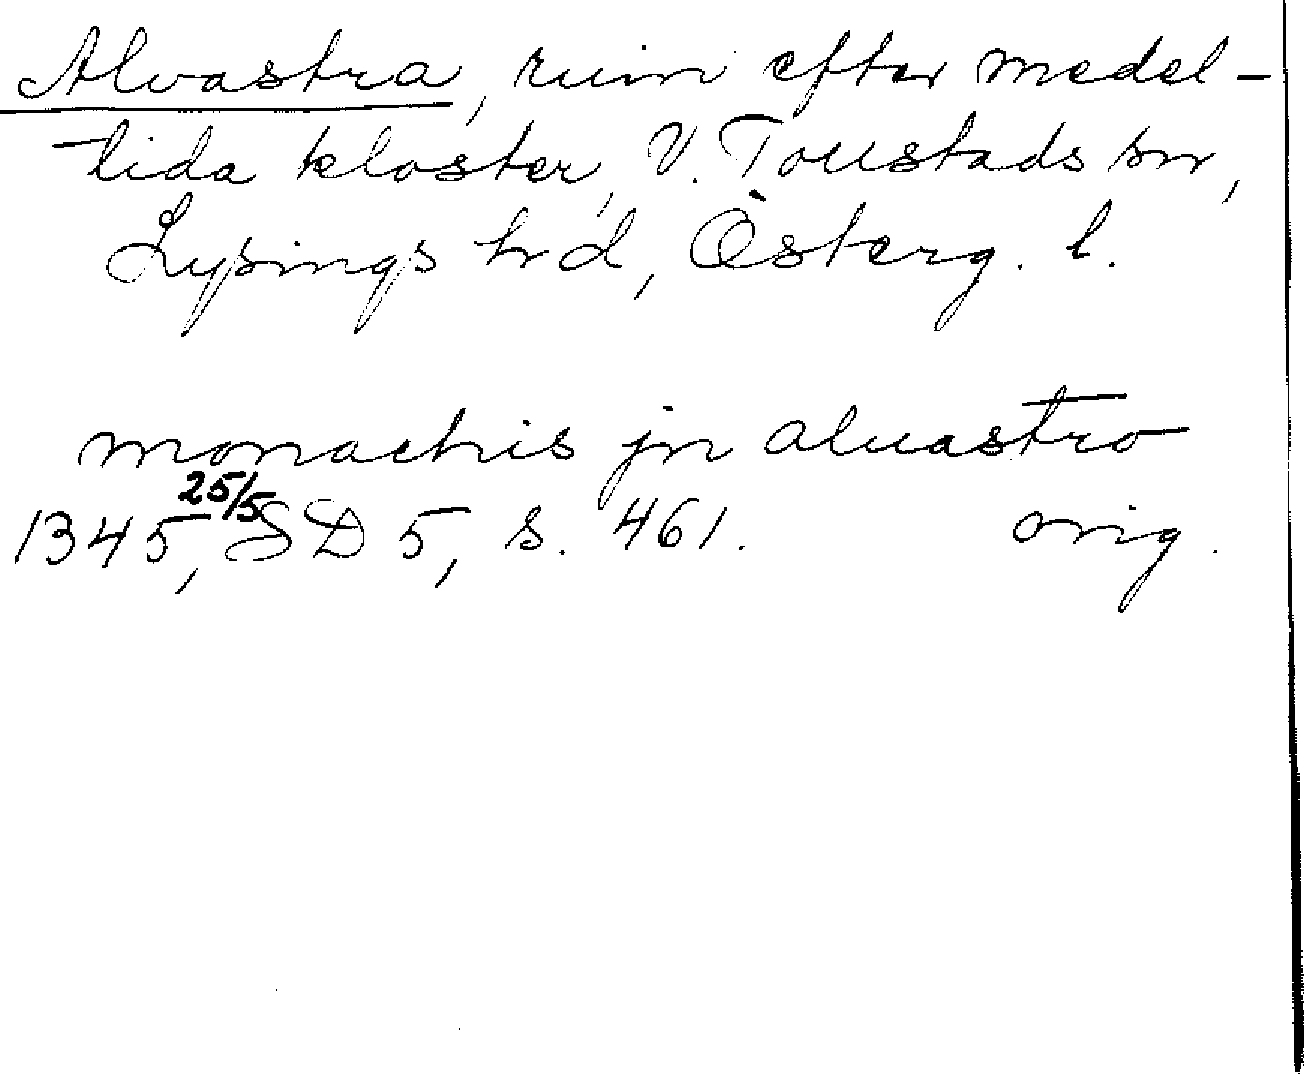 Alvastra, ruin efter medel-
tida kloster, V. Tollstads sn,
Lysings hd, Österg. l.
monachis jn aluastro
1345 25/5, SD 5, s. 461. orig.